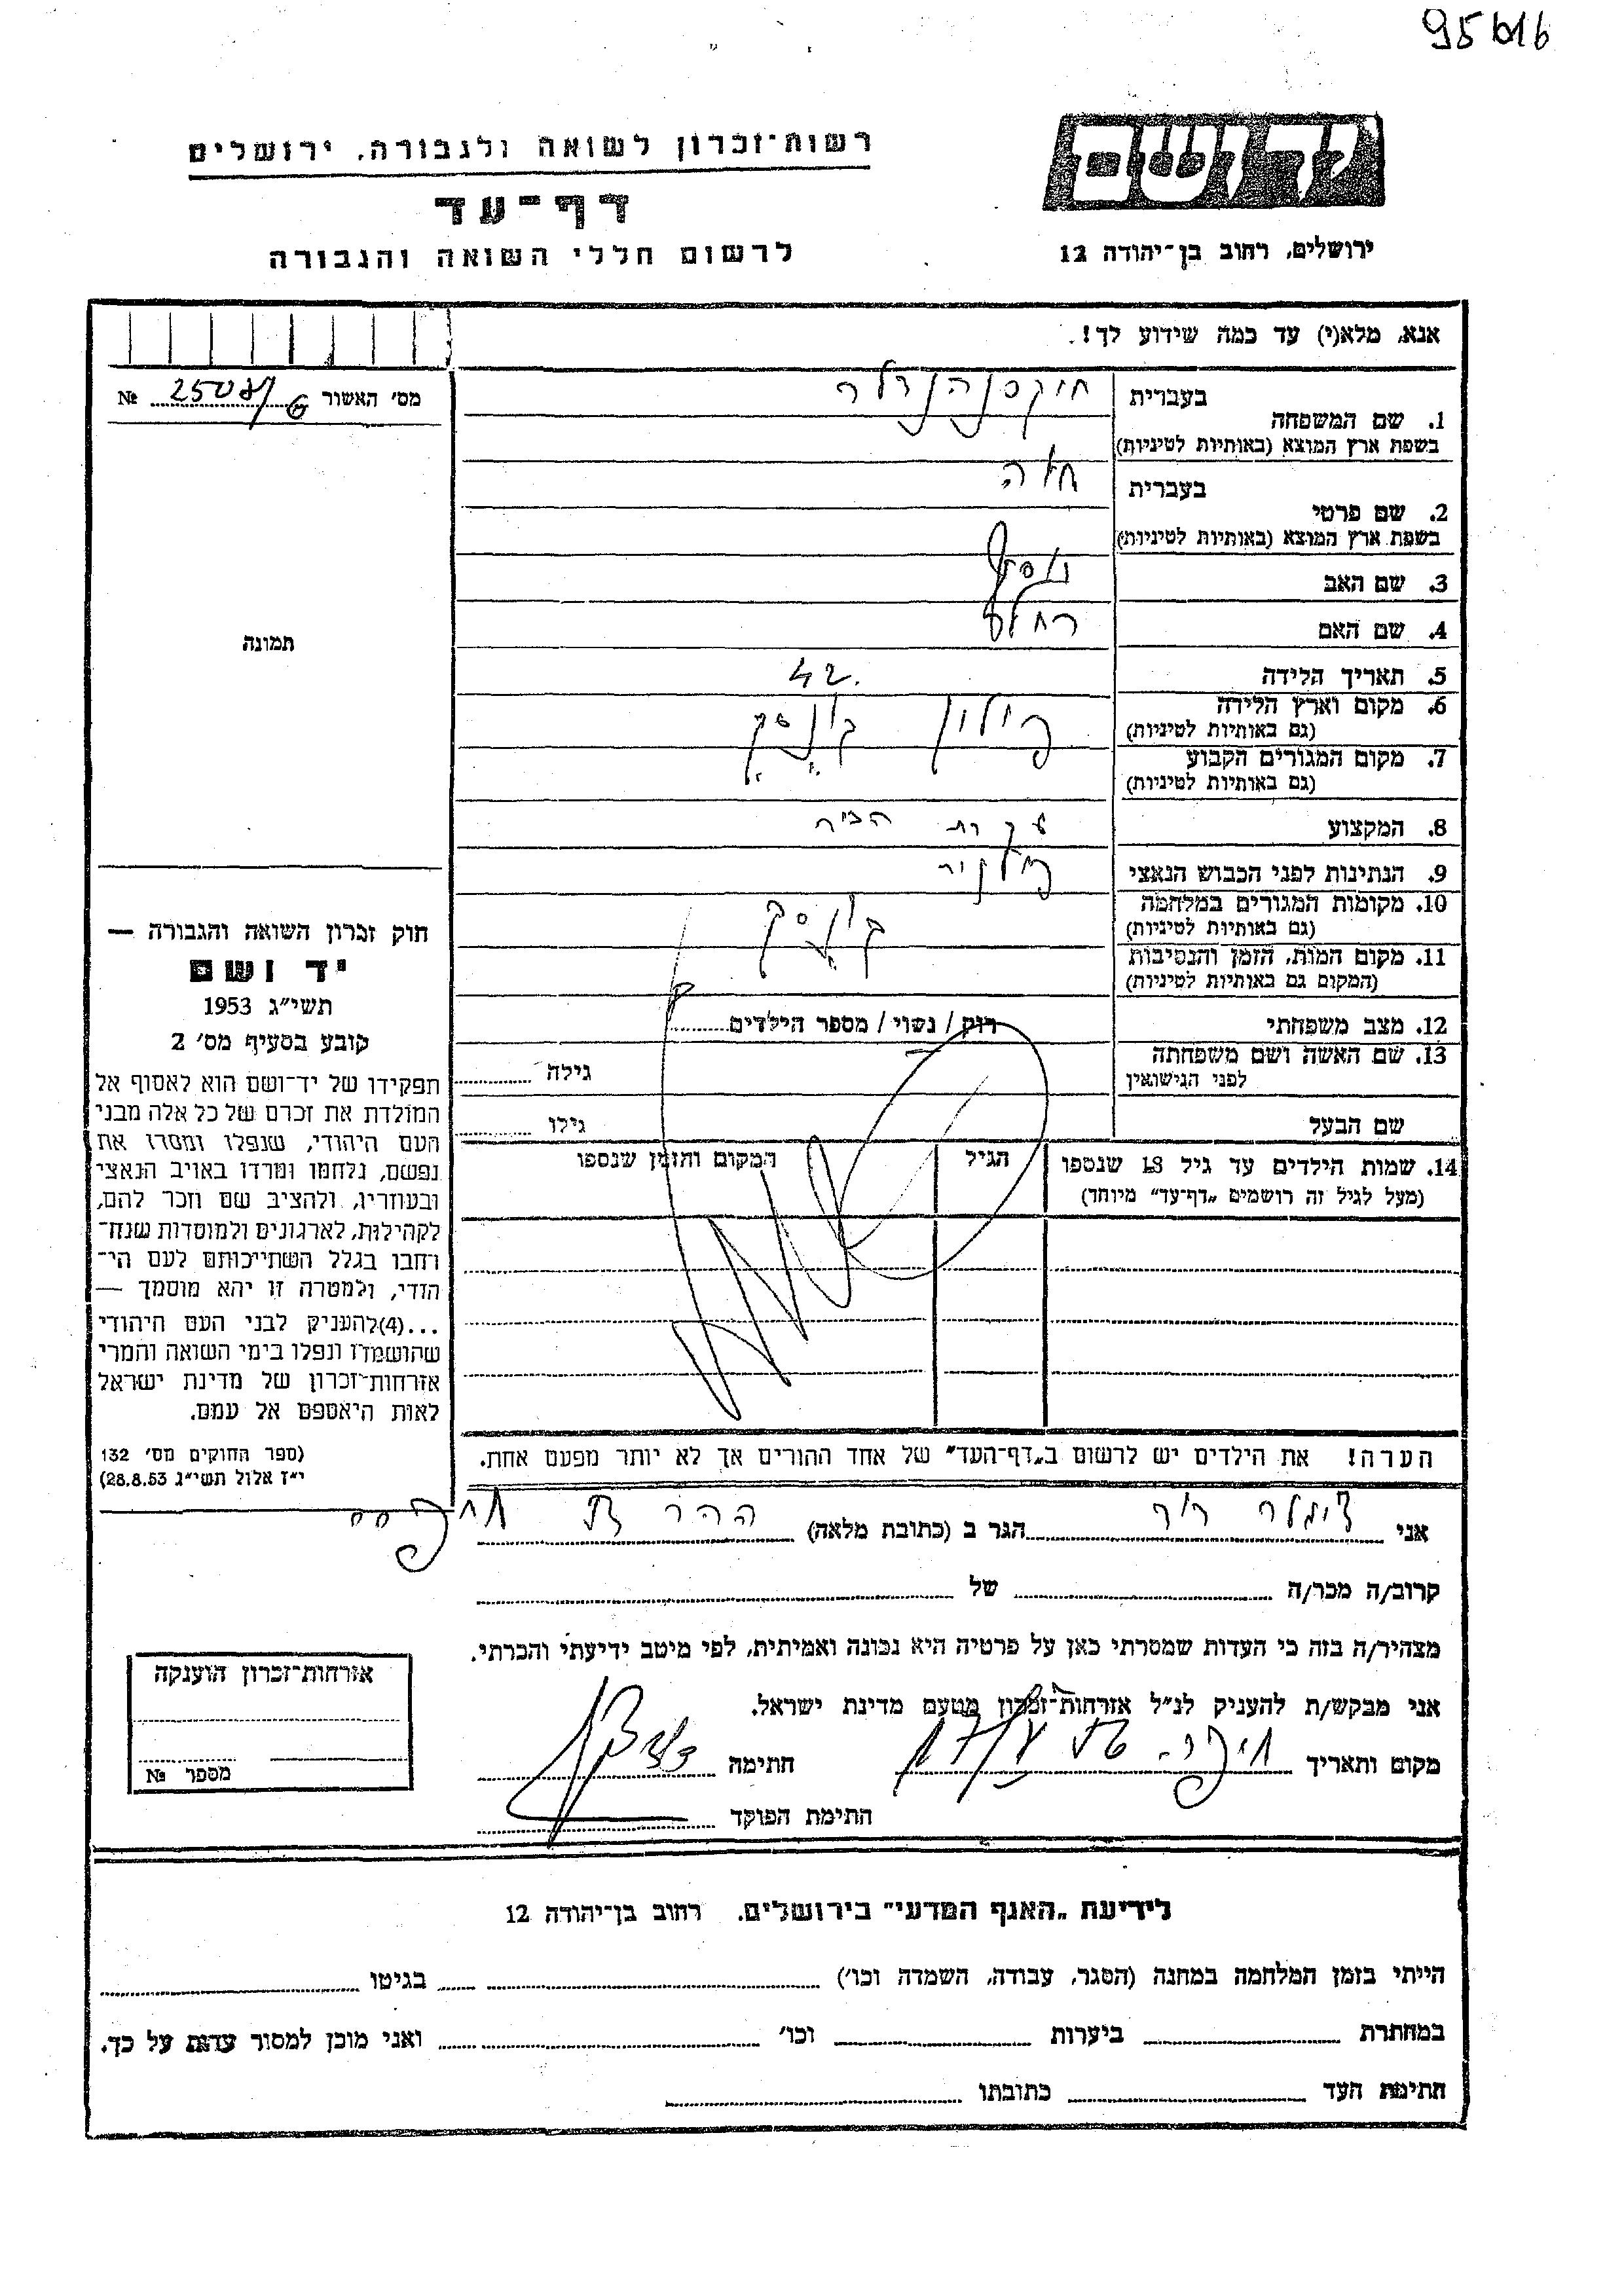 רשות־זכרון לשואה ולגבורה, ירושלים
דף־עד
לרשום חללי השואה והגבורה
יד ושם
ירושלים, רחוב בן־יהודה 12
אנא, מלא(י) עד כמה שידוע לך!
מס׳ האשור №
1. שם המשפחה בעברית
בשפת ארץ המוצא (באותיות לטיניות)
2. שם פרטי בעברית חיה
בשפת ארץ המוצא (באותיות לטיניות)
3. שם האב יוסף
4. שם האם רחל
5. תאריך הלידה 42
6. מקום וארץ הלידה פולין
(גם באותיות לטיניות)
7. מקום המגורים הקבוע
(גם באותיות לטיניות)
8. המקצוע עקרת הבית
9. הנתינות לפני הכבוש הנאצי פולנית
10. מקומות המגורים במלחמה
(גם באותיות לטיניות)
11. מקום המות, הזמן והנסיבות
(המקום גם באותיות לטיניות)
12. מצב משפחתי רוק / נשוי / מספר הילדים
13. שם האשה ושם משפחתה גילה
לפני הנישואין
שם הבעל גילו
14. שמות הילדים עד גיל 18 שנספו הגיל המקום והזמן שנספו
(מעל לגיל זה רושמים „דף־עד״ מיוחד)
הערה! את הילדים יש לרשום ב„דף־העד״ של אחד ההורים אך לא יותר מפעם אחת.
תמונה
חוק זכרון השואה והגבורה —
יד ושם
תשי״ג 1953
קובע בסעיף מס׳ 2
תפקידו של יד־ושם הוא לאסוף אל
המולדת את זכרם של כל אלה מבני
העם היהודי, שנפלו ומסרו את
נפשם, נלחמו ומרדו באויב הנאצי
ובעוזריו, ולהציב שם וזכר להם,
לקהילות, לארגונים ולמוסדות שנח־
רחבו בגלל השתייכותם לעם הי־
הודי, ולמטרה זו יהא מוסמך —
...(4)להעניק לבני העם היהודי
שהושמדו ונפלו בימי השואה והמרי
אזרחות־זכרון של מדינת ישראל
לאות היאספם אל עמם.
(ספר החוקים מס׳ 132
י״ז אלול תשי״ג 28.8.53)
אני הגר ב (כתובת מלאה)
קרוב/ה מכר/ה של
מצהיר/ה בזה כי העדות שמסרתי כאן על פרטיה היא נכונה ואמיתית, לפי מיטב ידיעתי והכרתי.
אני מבקש/ת להעניק לנ״ל אזרחות־זכרון מטעם מדינת ישראל.
מקום ותאריך חיפה חתימה
חתימת הפוקד
אזרחות־זכרון הוענקה
מספר №
לידיעת „האגף המדעי״ בירושלים, רחוב בן־יהודה 12
הייתי בזמן המלחמה במחנה (הסגר, עבודה, השמדה וכו׳) בגיטו
במחתרת ביערות וכו׳ ואני מוכן למסור עדות על כך.
חתימת העד כתובתו